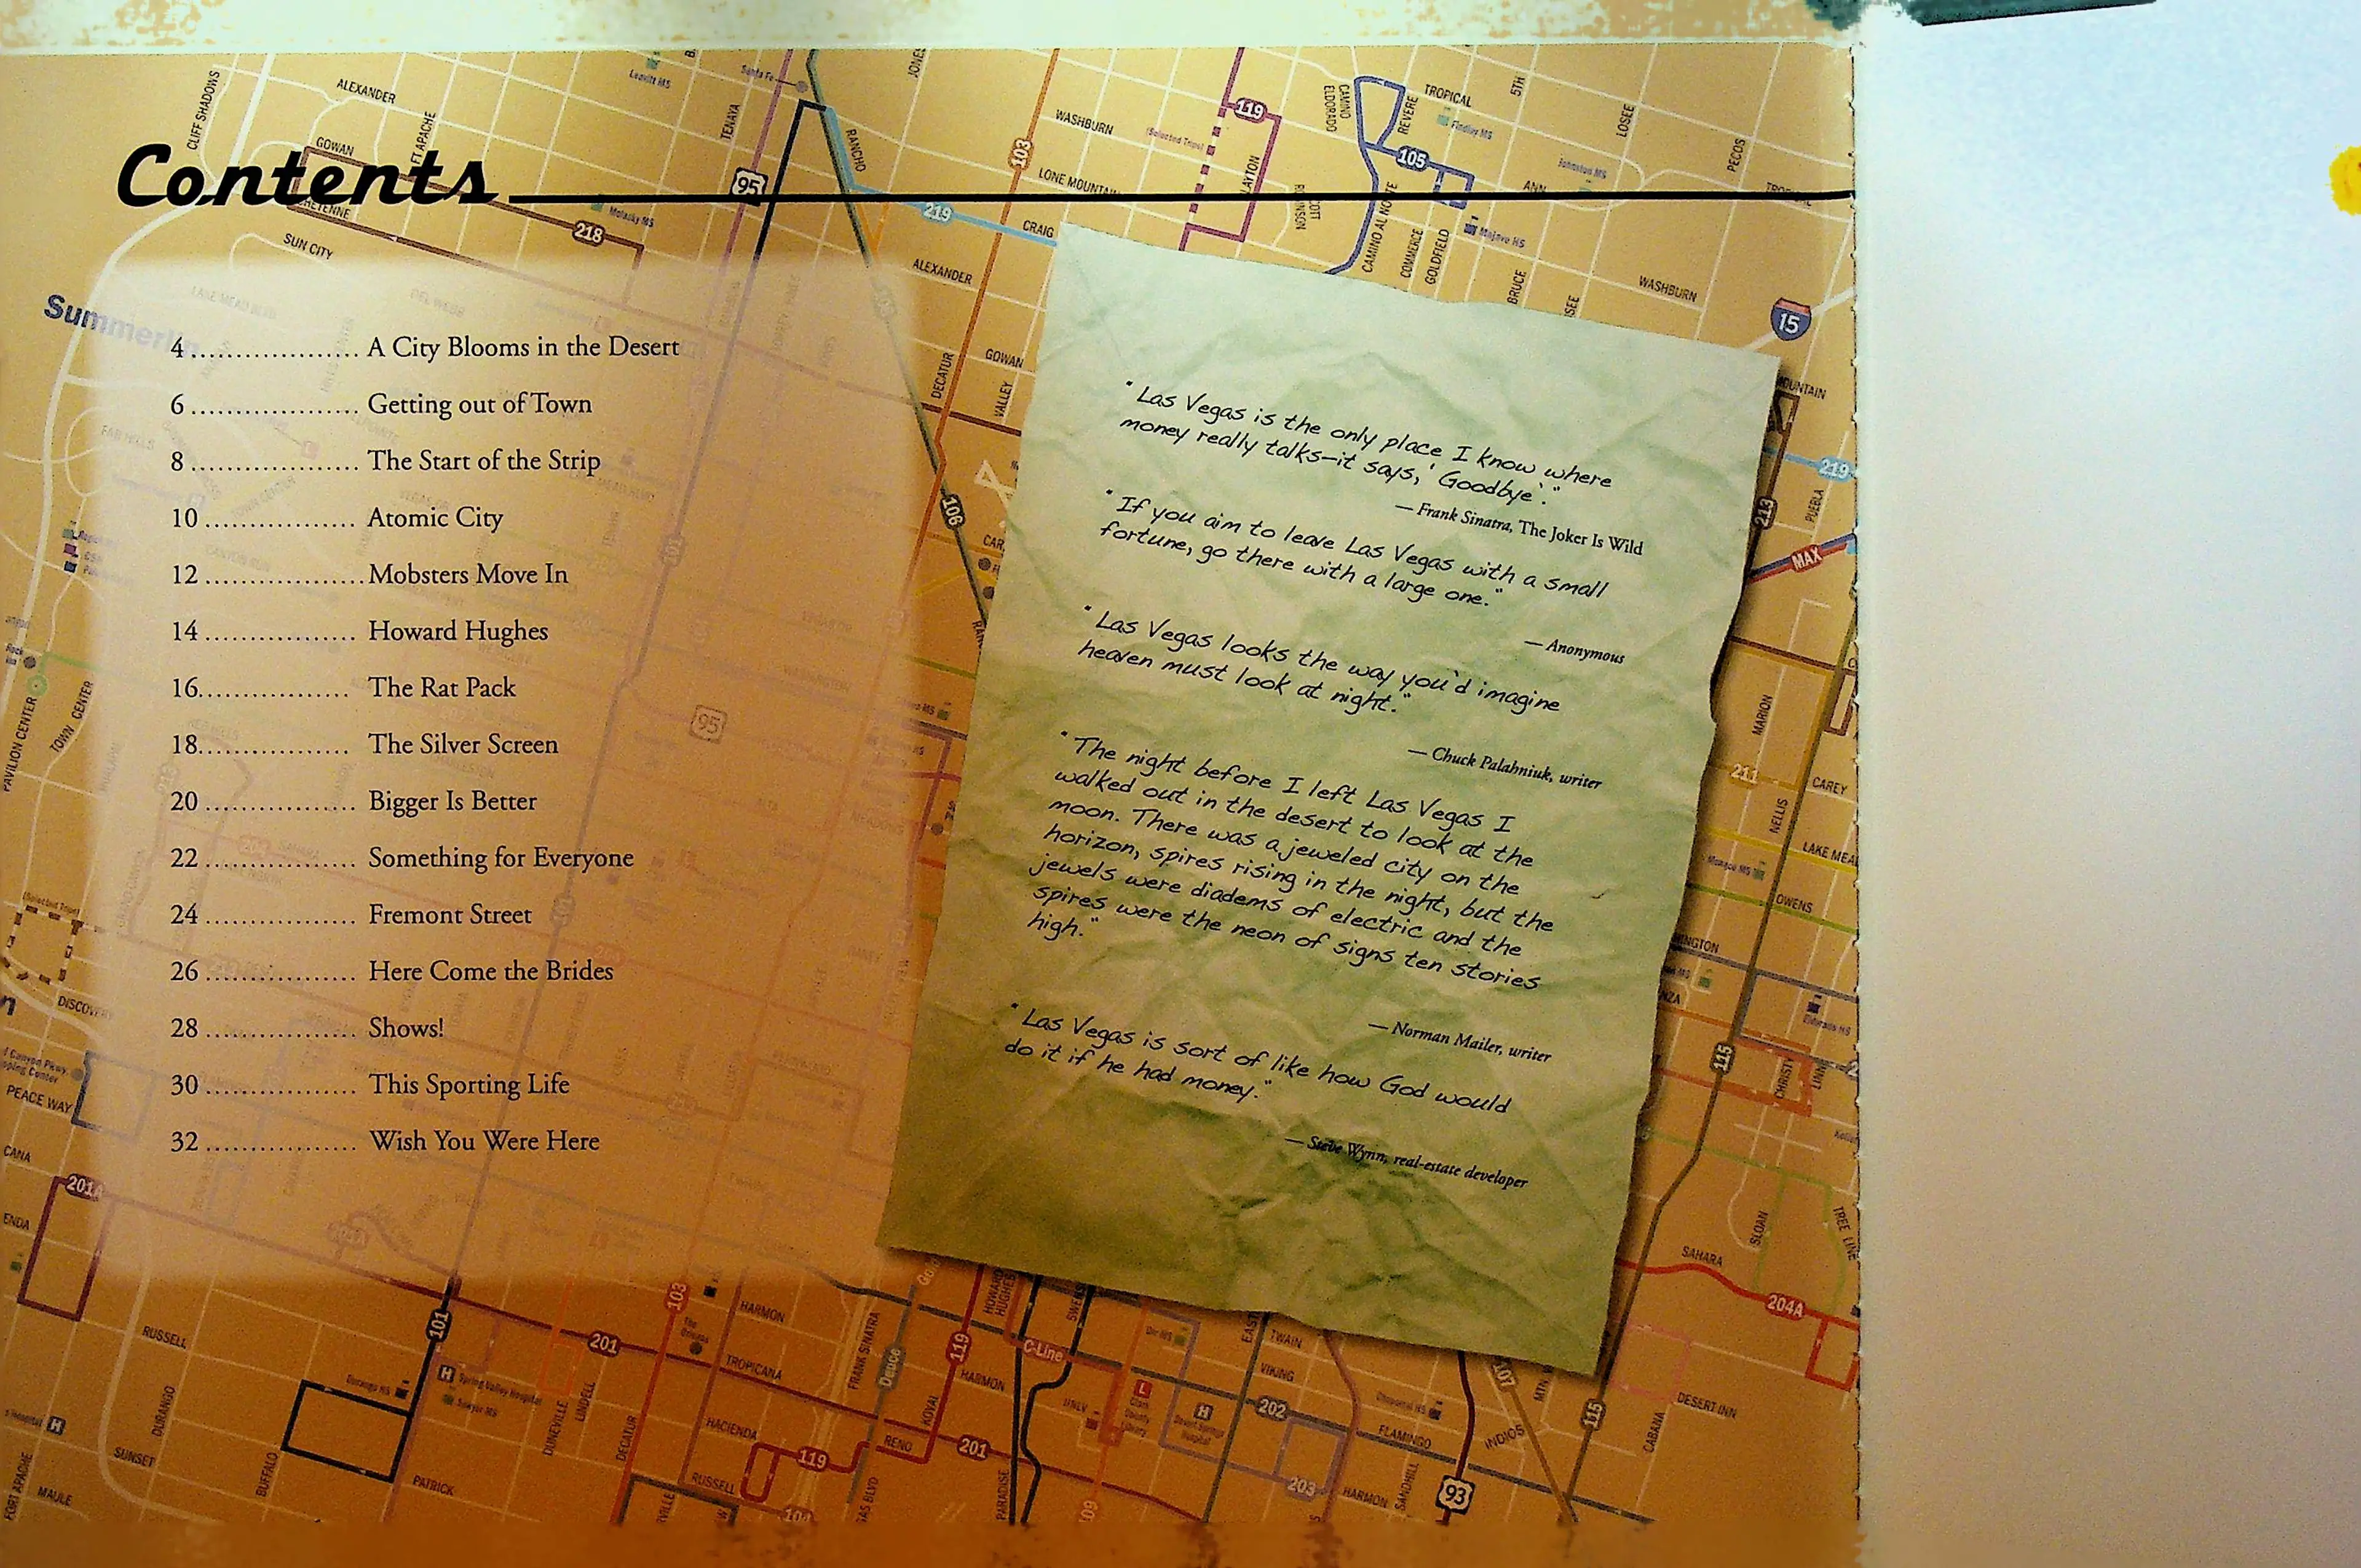 Contents
4 ................... A City Blooms in the Desert
6 ................... Getting out of Town
8 ................... The Start of the Strip
10 ................. Atomic City
12 ..................Mobsters Move In
14 ................. Howard Hughes
16................. The Rat Pack
18................. The Silver Screen
20 ................. Bigger Is Better
22 ................. Something for Everyone
24 ................. Fremont Street
26 ................. Here Come the Brides
28 ................. Shows!
30 ................. This Sporting Life
32 ................. Wish You Were Here
"Las Vegas is the only place I know where
money really talks—it says, 'Goodbye'."
— Frank Sinatra, The Joker Is Wild
"If you aim to leave Las Vegas with a small
fortune, go there with a large one."
— Anonymous
"Las Vegas looks the way you'd imagine
heaven must look at night."
— Chuck Palahniuk, writer
"The night before I left Las Vegas I
walked out in the desert to look at the
moon. There was a jeweled city on the
horizon, spires rising in the night, but the
jewels were diadems of electric and the
spires were the neon of signs ten stories
high."
— Norman Mailer, writer
"Las Vegas is sort of like how God would
do it if he had money."
— Steve Wynn, real-estate developer
CLIFF SHADOWS
ALEXANDER
FT APACHE
GOWAN
SUN CITY
218
Summerlin
TENAYA
Santa Fe
95
RANCHO
JONES
103
WASHBURN
LONE MOUNTAIN
219
CRAIG
ALEXANDER
DECATUR
GOWAN
VALLEY
106
119
CAMINO
ELDORADO
REVERE
TROPICAL
5TH
LOSEE
PECOS
105
ANN
CAMINO AL NORTE
COMMERCE
GOLDFIELD
Mojave HS
BRUCE
WASHBURN
15
219
213
PUEBLA
MAX
MARION
211
CAREY
NELLIS
OWENS
115
CHRISTY
SLOAN
TREE LINE
SAHARA
204A
DESERT INN
CABANA
115
PAVILION CENTER
TOWN CENTER
95
101
PEACE WAY
201A
RUSSELL
DURANGO
SUNSET
MAULE
FORT APACHE
BUFFALO
PATRICK
101
Spring Valley Hospital
Sawyer MS
Durango HS
201
DUNEVILLE
LINDELL
DECATUR
103
HARMON
TROPICANA
HACIENDA
RUSSELL
119
RENO
FRANK SINATRA
Deuce
KOVAL
119
HARMON
HOWARD
HUGHES
C-Line
201
PARADISE
UNLV
Clark
County
Library
202
203
TWAIN
VIKING
FLAMINGO
HARMON
SANDHILL
93
INDIOS
109